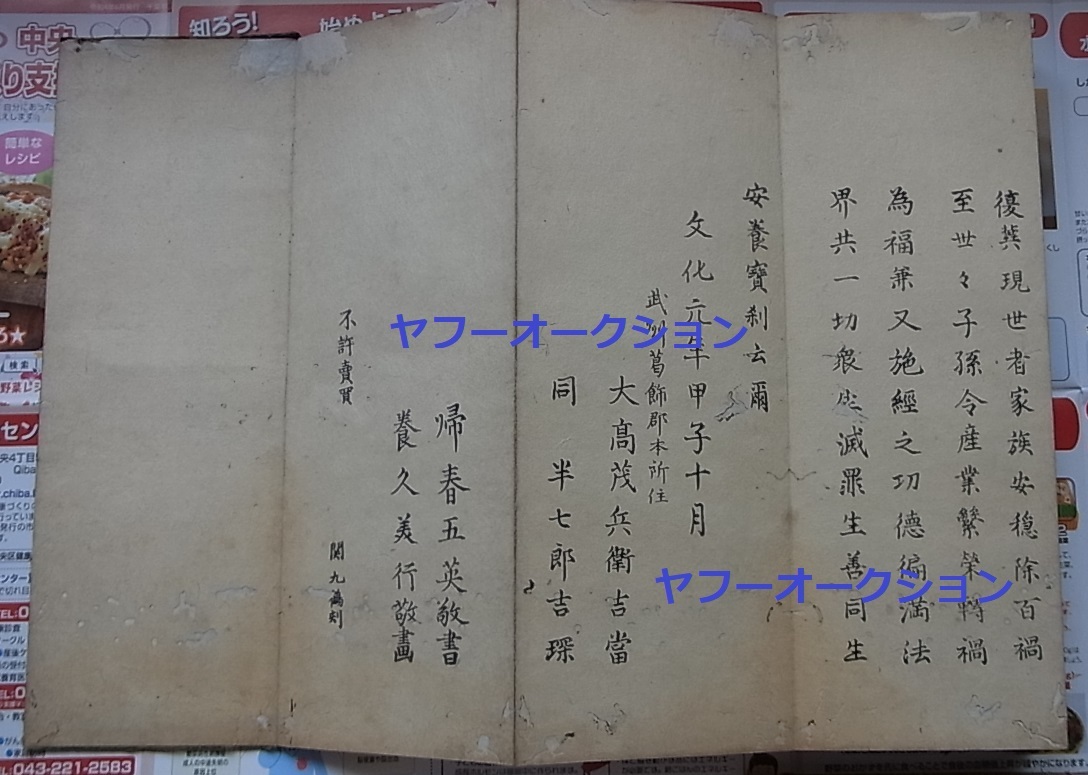 復冀現世者家族安穏除百禍
至世々子孫令産業繁榮轉禍
為福兼又施經之功德徧満法
界共一切衆生滅罪生善同生
安養寶刹云爾
文化元年甲子十月
武州葛飾郡本所住
大髙茂兵衛吉當
同 半七郎吉琛
歸春五英敬書
養久美行敬畫
不許賣買
関九爲刻
ヤフーオークション
ヤフーオークション
知ろう!
中央
簡単な
レシピ
検索
043-221-2583